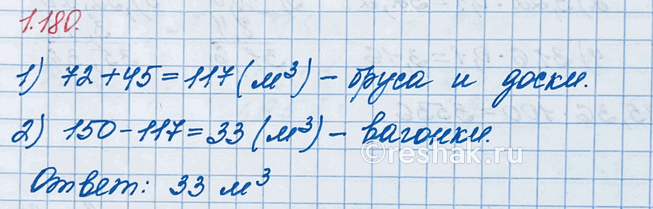 1.180.
1) 72 + 45 = 117 (м³) – бруса и доски.
2) 150 – 117 = 33 (м³) – вагонки.
reshak.ru
Ответ: 33 м³